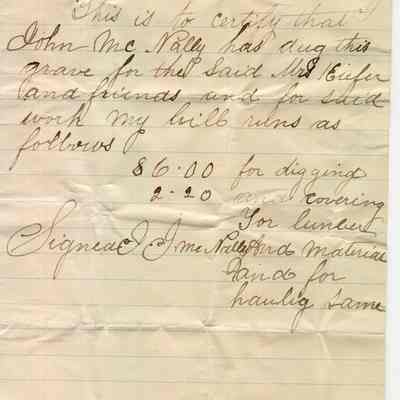 This is to certify that
John Mc Nally has dug this
grave for the Said Mrs Kiefer
and friends and for said
work my bill runs as
follows
$6.00 for digging
2.20 and covering
For lumber
Signed J J Mc Nally And Material
and for
haulig same